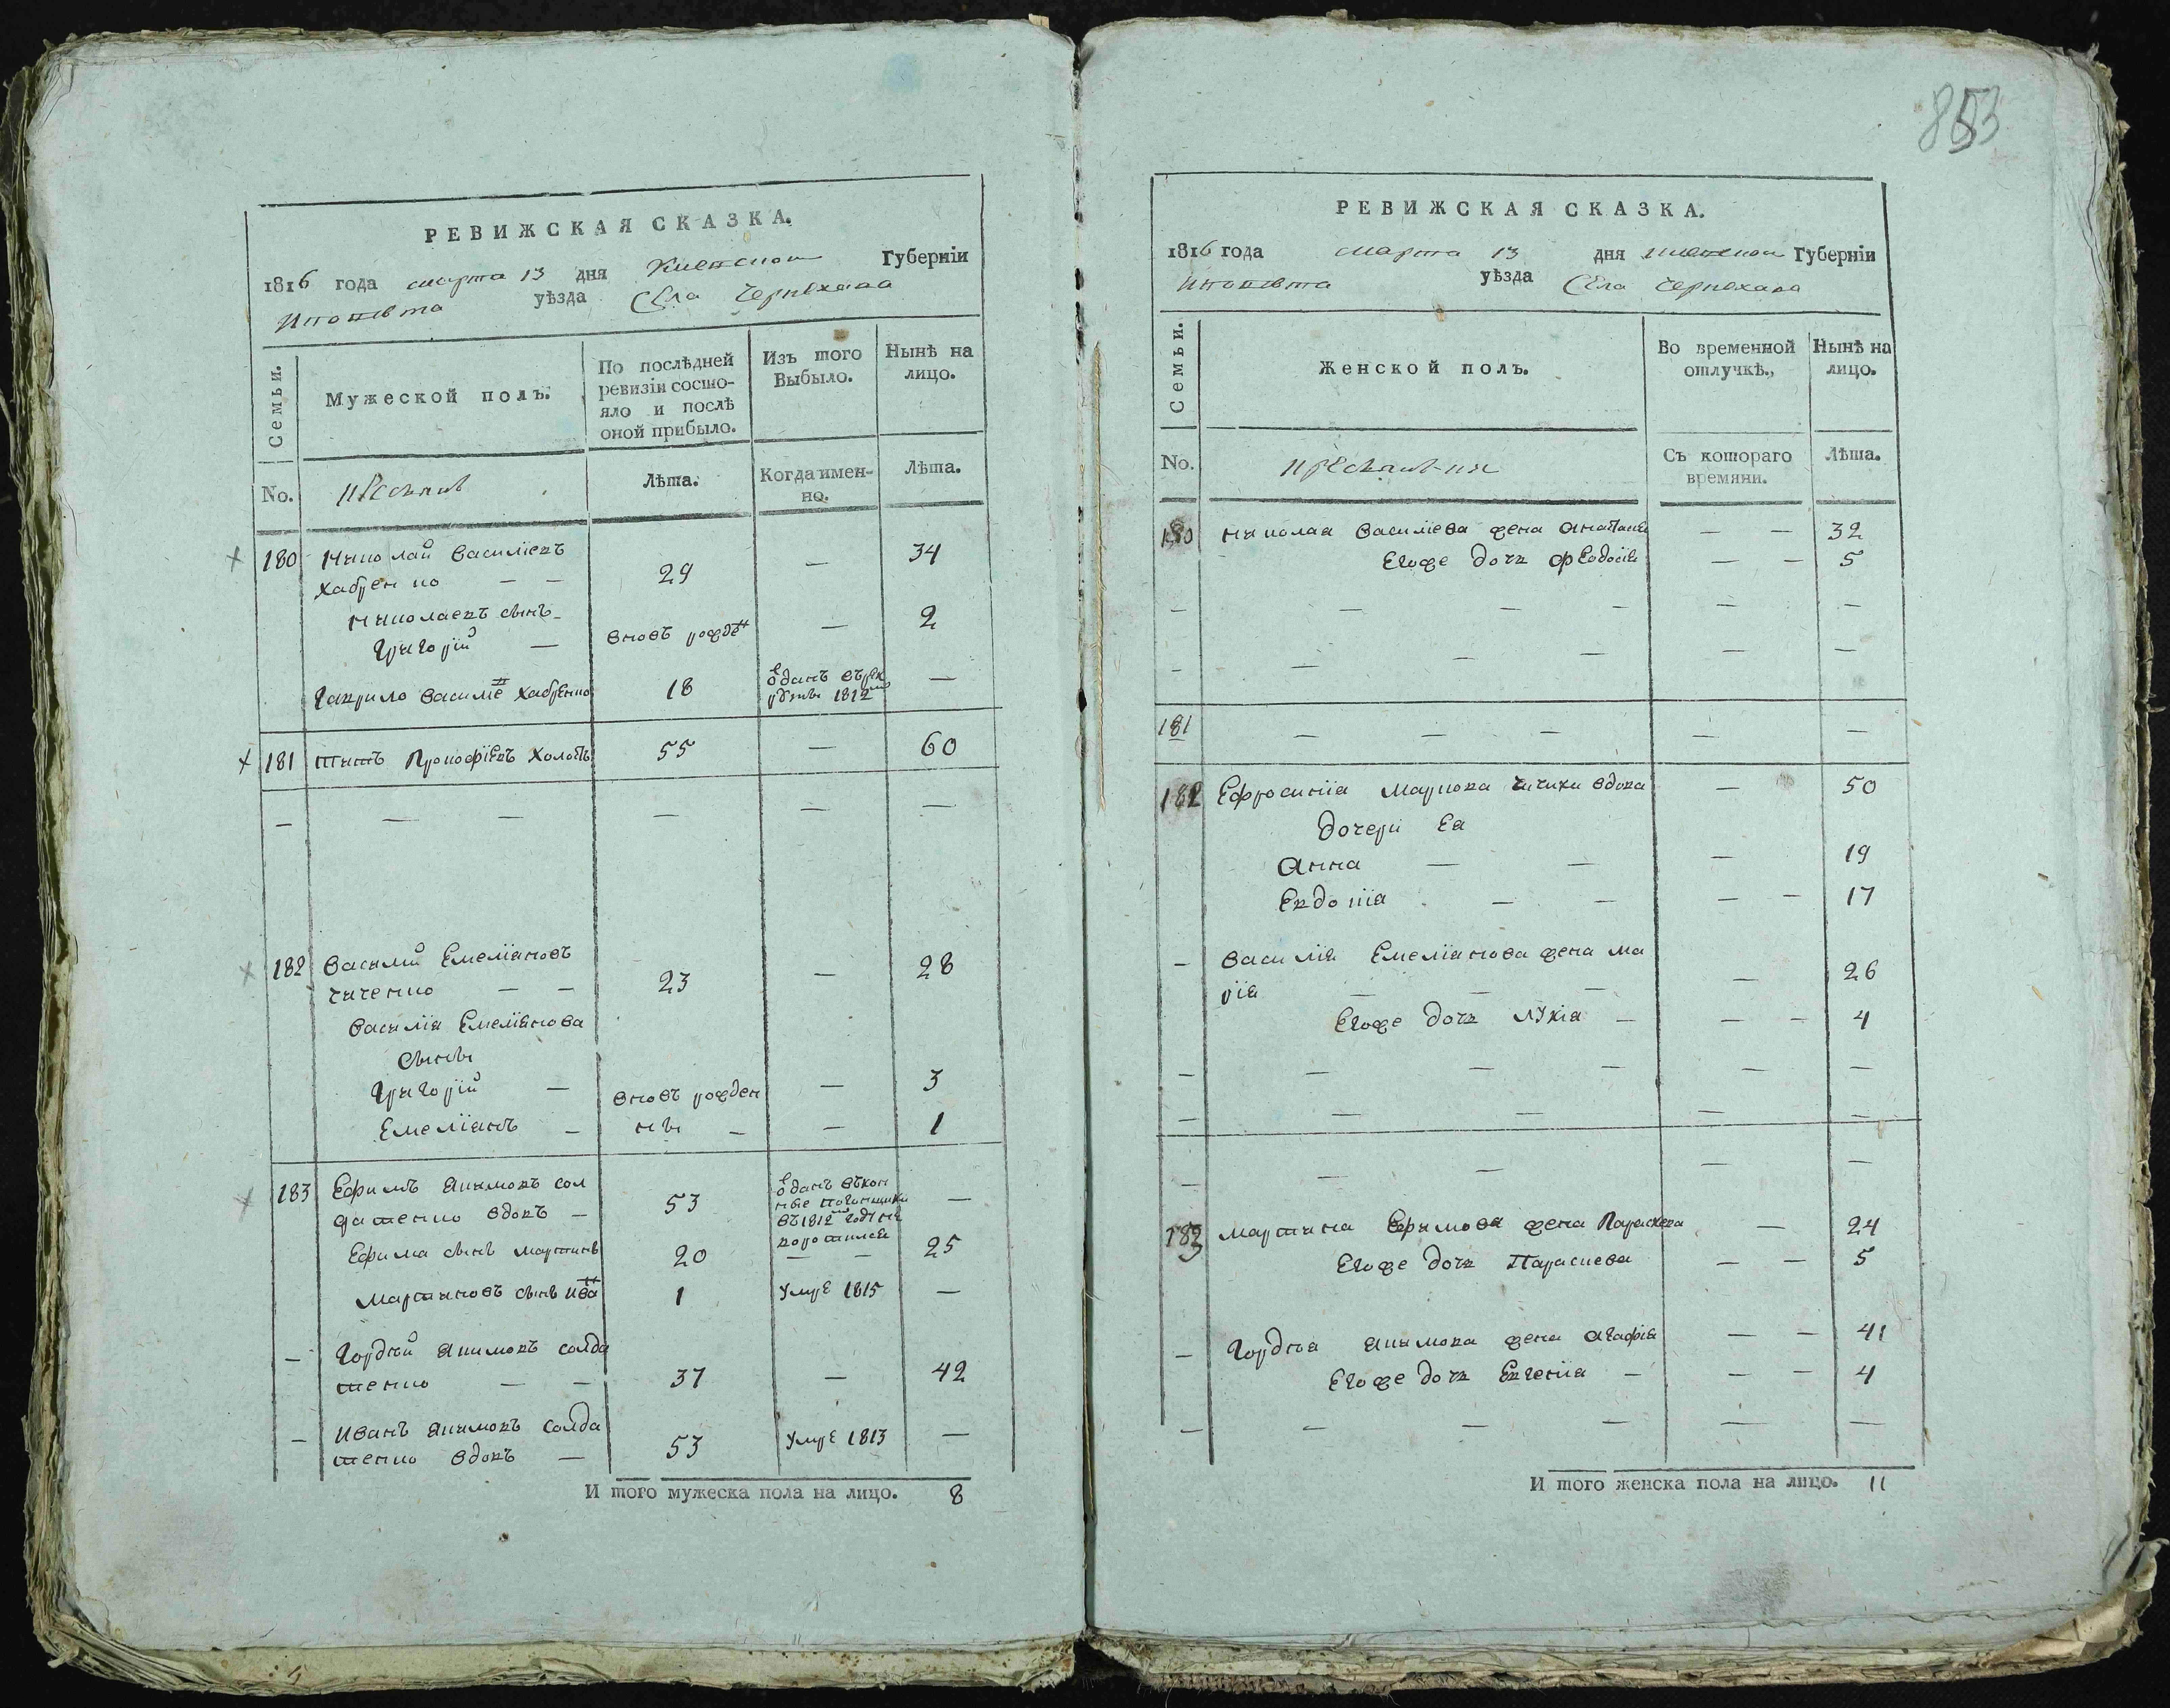 853
РЕВИЖСКАЯ СКАЗКА.
1816 года марта 13 дня Киевской Губернїи
уѣзда Села Черняхова
Семьи.
Мужеской полъ.
По послѣдней
ревизїи состо-
яло и послѣ
оной прибыло.
Изъ того
Выбыло.
Нынѣ на
лицо.
No.
Лѣта.
Когда имен-
но.
Лѣта.
180 Николай Василіевъ
Хабренко — — 29 — 34
Николаевъ сынъ
Григорїй — вновъ рожден — 2
Гаврило Василіе Хабренко 18 одданъ въ рек
руты 1812 —
181 Титъ Прокофїевъ Холодъ 55 — 60
— — — — — —
182 Василий Емелїановъ
чиченко — — 23 — 28
Василїя Емелїанова
сыны
Григорїй — вновъ рожден — 3
Емелїанъ — ны — — 1
183 Ефимъ Якимовъ сол
датенко вдовъ — 53 одданъ въ кон
ные погонщики
въ 1812 году не
воротился —
Ефима сынъ мартинъ 20 — — 25
мартиновъ сынъ Иван 1 умре 1815 —
— Гордѣй Якимовъ солда
тенко — — 37 — 42
— Иванъ Якимовъ солда
тенко вдовъ — 53 умре 1813 —
И того мужеска пола на лицо. 8
РЕВИЖСКАЯ СКАЗКА.
1816 года марта 13 дня Киевской Губернїи
уѣзда Села Черняхова
Семьи.
Женской полъ.
Во временной
отлучкѣ.,
Нынѣ на
лицо.
No.
Съ котораго
времяни.
Лѣта.
180 Николая Василіева жена — — 32
Егоже дочь Феодосїя — — 5
— — — — — —
— — — — — —
181 — — — — —
182 Ефросинїя Маркова чичиха вдова — 50
дочери Ея
Анна — — — 19
Евдокїя — — — — 17
— Василїя Емелїанова жена ма
рїя — — — — 26
Егоже дочь Лукїя — — — 4
— — — — — —
— — — — —
— — — — —
183 мартина Ефимова жена Параскева — 24
Егоже дочь Параскева — — 5
— Гордѣя Якимова жена Агафїя — — 41
Егоже дочь Евгенїя — — — 4
— — — — — —
И того женска пола на лицо. 11